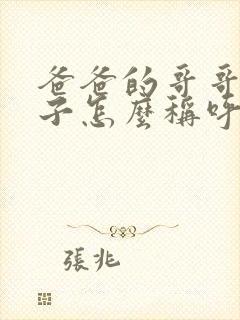 爸爸的哥哥
子怎麼稱呼
張兆